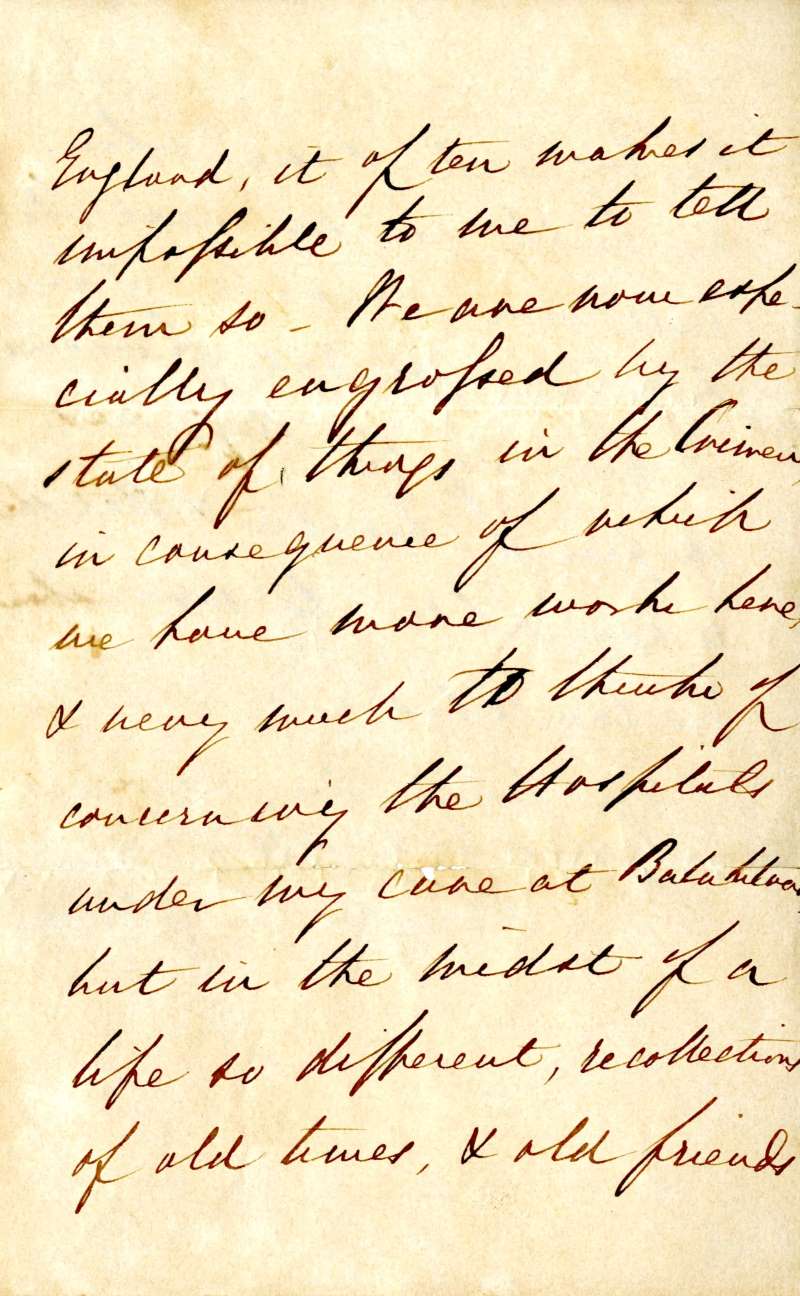 England, it often makes it
impossible to me to tell
them so - We are now espe-
cially engrossed by the
state of things in the Crimea,
in consequence of which
we have more work here,
& very much to think of
concerning the Hospitals
under my care at Balaklava.
but in the midst of a
life so different, recollections
of old times, & old friends